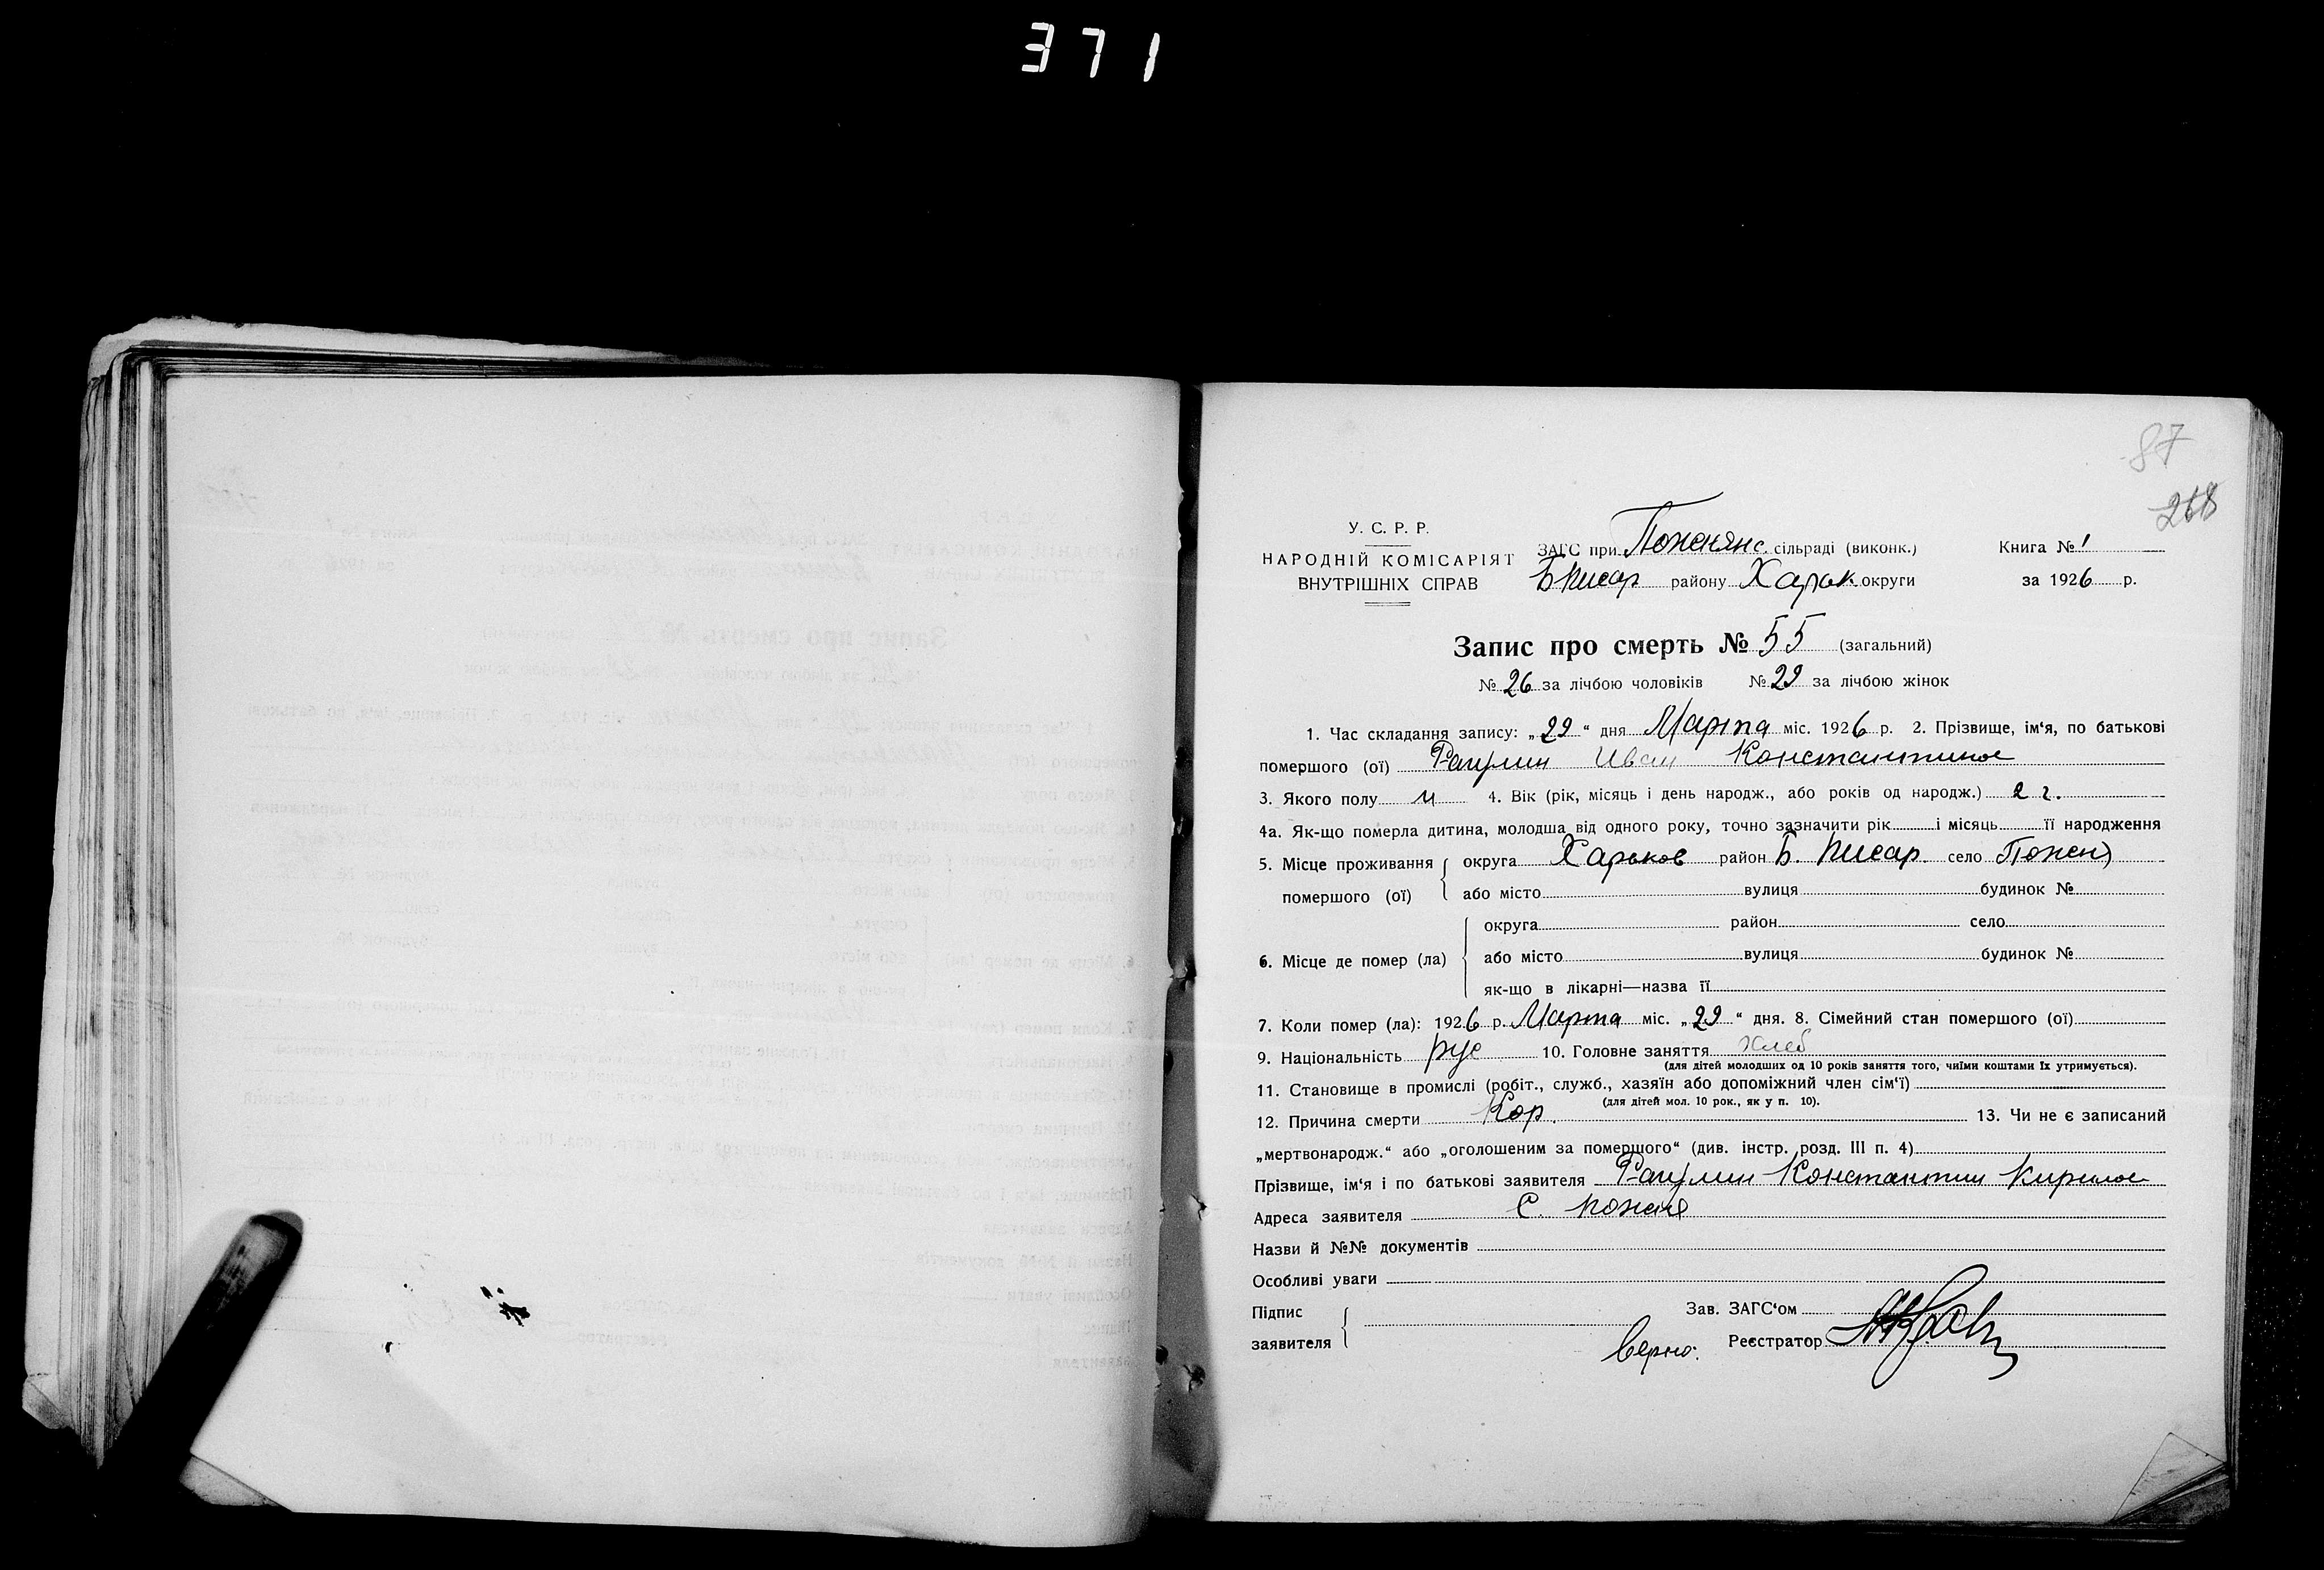 371
87
268
У. С. Р. Р.
НАРОДНІЙ КОМІСАРІЯТ
ВНУТРІШНІХ СПРАВ
ЗАГС при Пожнянс. сільраді (виконк.)
Б Писар району Харьк. округи
Книга № 1
за 1926 р.
Запис про смерть № 55 (загальний)
№ 26 за лічбою чоловіків № 29 за лічбою жінок
1. Час складання запису: „29“ дня Марта міс. 1926 р. 2. Прізвище, ім‘я, по батькові
помершого (ої) Иван Константинов
3. Якого полу м 4. Вік (рік, місяць і день народж., або років од народж.) 2 г.
4а. Як-що померла дитина, молодша від одного року, точно зазначити рік і місяць її народження
5. Місце проживання помершого (ої) округа Харьков район Б. Писар. село Пожня
або місто вулиця будинок №
6. Місце де помер (ла) округа район село
або місто вулиця будинок №
як-що в лікарні—назва її
7. Коли помер (ла): 1926 р. Марта міс. „29“ дня. 8. Сімейний стан помершого (ої)
9. Національність рус 10. Головне заняття хлеб
(для дітей молодших од 10 років заняття того, чиїми коштами їх утримується).
11. Становище в промислі (робіт., служб., хазяїн або допоміжний член сім‘ї)
(для дітей мол. 10 рок., як у п. 10).
12. Причина смерти Кор. 13. Чи не є записаний
„мертвонародж.“ або „оголошеним за помершого“ (див. інстр. розд. III п. 4)
Прізвище, ім‘я і по батькові заявителя Константин Кирилов
Адреса заявителя С. Пожня
Назви й №№ документів
Особливі уваги
Підпис заявителя
Зав. ЗАГС‘ом
Верно: Реєстратор